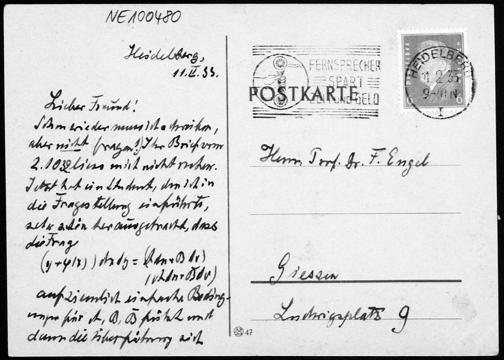 NE100480
Heidelberg,
11.II.33.
Lieber Freund!
Schon wieder muss ich schreiben,
aber nicht fragen! Ihr Brief vom
2.10. liess mich nicht ruhen.
Jetzt hat ein Student, den ich in
die Fragestellung einführte,
sehr schön herausgebracht, dass
die Frag
auf ziemlich einfache Beding-
ungen für A, B, führt und
dann die Überführung sich
FERNSPRECHER
SPART
ZEIT UND GELD
POSTKARTE
HEIDELBERG
11.2.33
I
Herrn Prof. Dr. F. Engel
Giessen
Ludwigsplatz 9
47